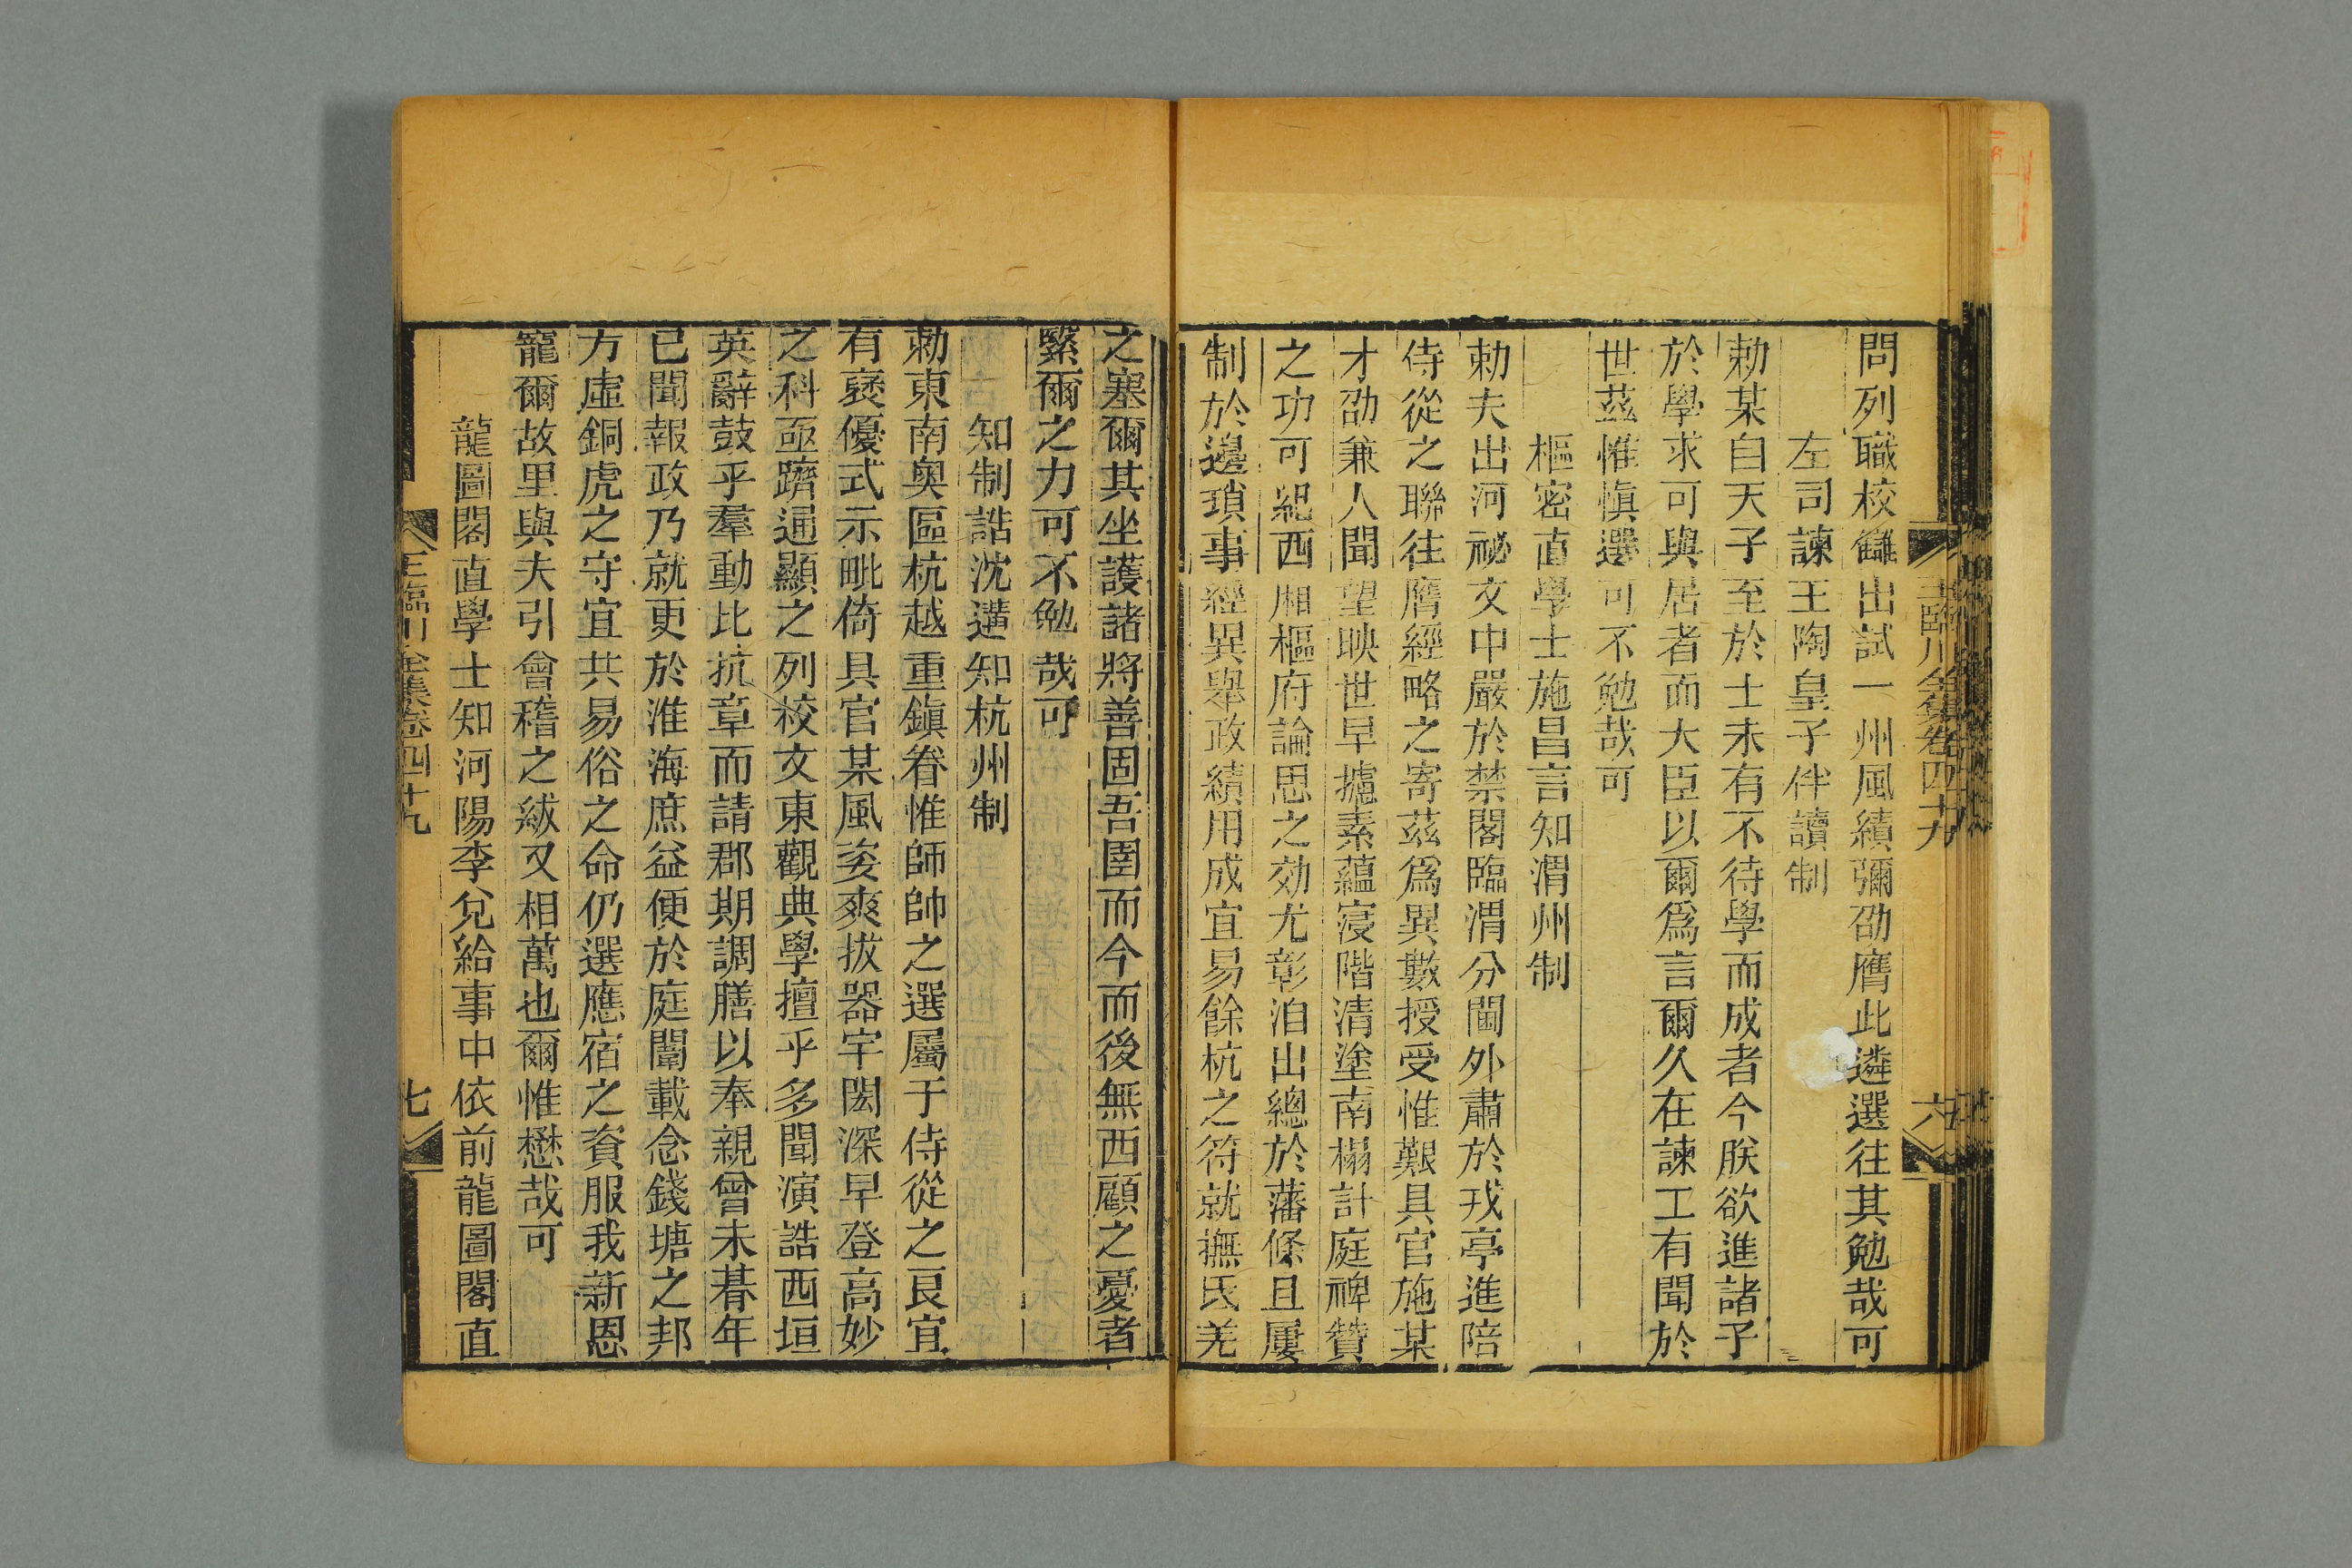 王臨川全集卷四十九
六
問列職校讎出試一州風績彌劭膺此遴選往其勉哉可
左司諫王陶皇子伴讀制
勅某自天子至於士未有不待學而成者今朕欲進諸子
於學求可與居者而大臣以爾爲言爾久在諫工有聞於
世茲惟慎選可不勉哉可
樞密直學士施昌言知渭州制
勅夫出河祕文中嚴於禁閣臨渭分閫外肅於戎亭進陪
侍從之聯往膺經略之寄茲爲異數授受惟艱具官施某
才劭兼人聞望映世早攄素蘊寖階清塗南榻計庭禆贊
之功可紀西廂樞府論思之効尤彰洎出總於藩條且屢
制於邊瑣事經異舉政績用成宜易餘杭之符就撫氐羌
之塞爾其坐護諸將善固吾圉而今而後無西顧之憂者
繄爾之力可不勉哉可
知制誥沈遘知杭州制
勅東南奥區杭越重鎭眷惟師帥之選屬于侍從之良宜
有褒優式示毗倚具官某風姿爽拔器宇閎深早登高妙
之科亟躋通顯之列校文東觀典學擅乎多聞演誥西垣
英辭鼓乎羣動比抗章而請郡期調膳以奉親曾未朞年
已聞報政乃就更於淮海庶益便於庭闈載念錢塘之邦
方虛銅虎之守宜共易俗之命仍選應宿之資服我新恩
寵爾故里與夫引會稽之紱又相萬也爾惟懋哉可
龍圖閣直學士知河陽李兌給事中依前龍圖閣直
王臨川全集卷四十九
七